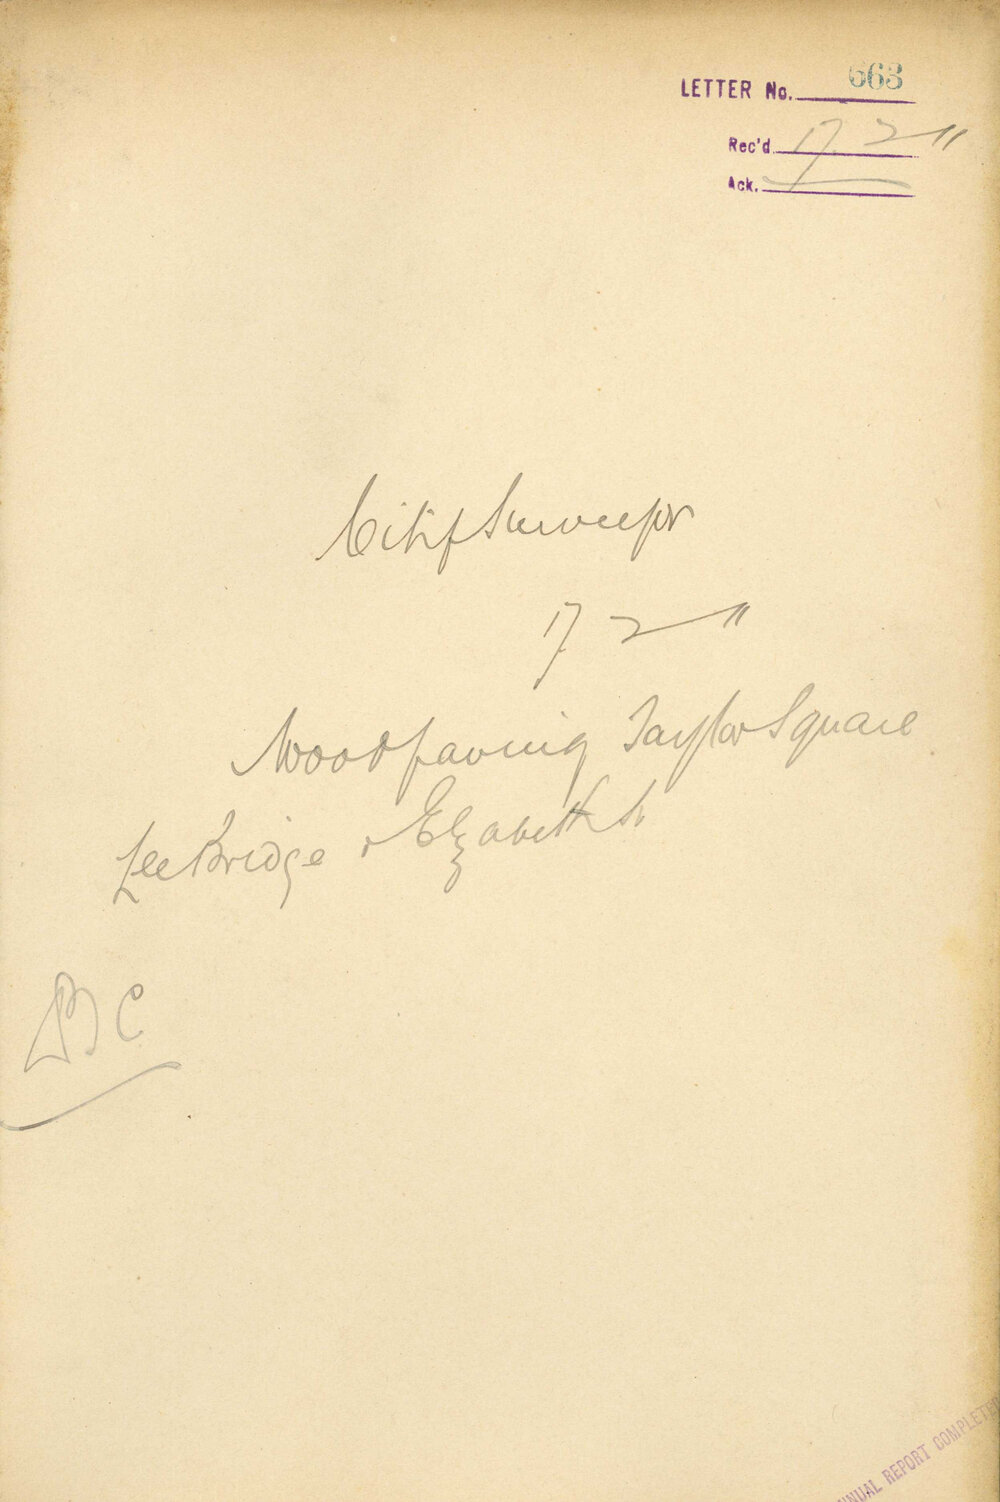 LETTER No. 663
Rec'd 17 2 11
Ack.
City Surveyor
17 2 11
Woodpaving Taylor Square
Lee Bridge & Elizabeth St
C
NNUAL REPORT COMPLETE